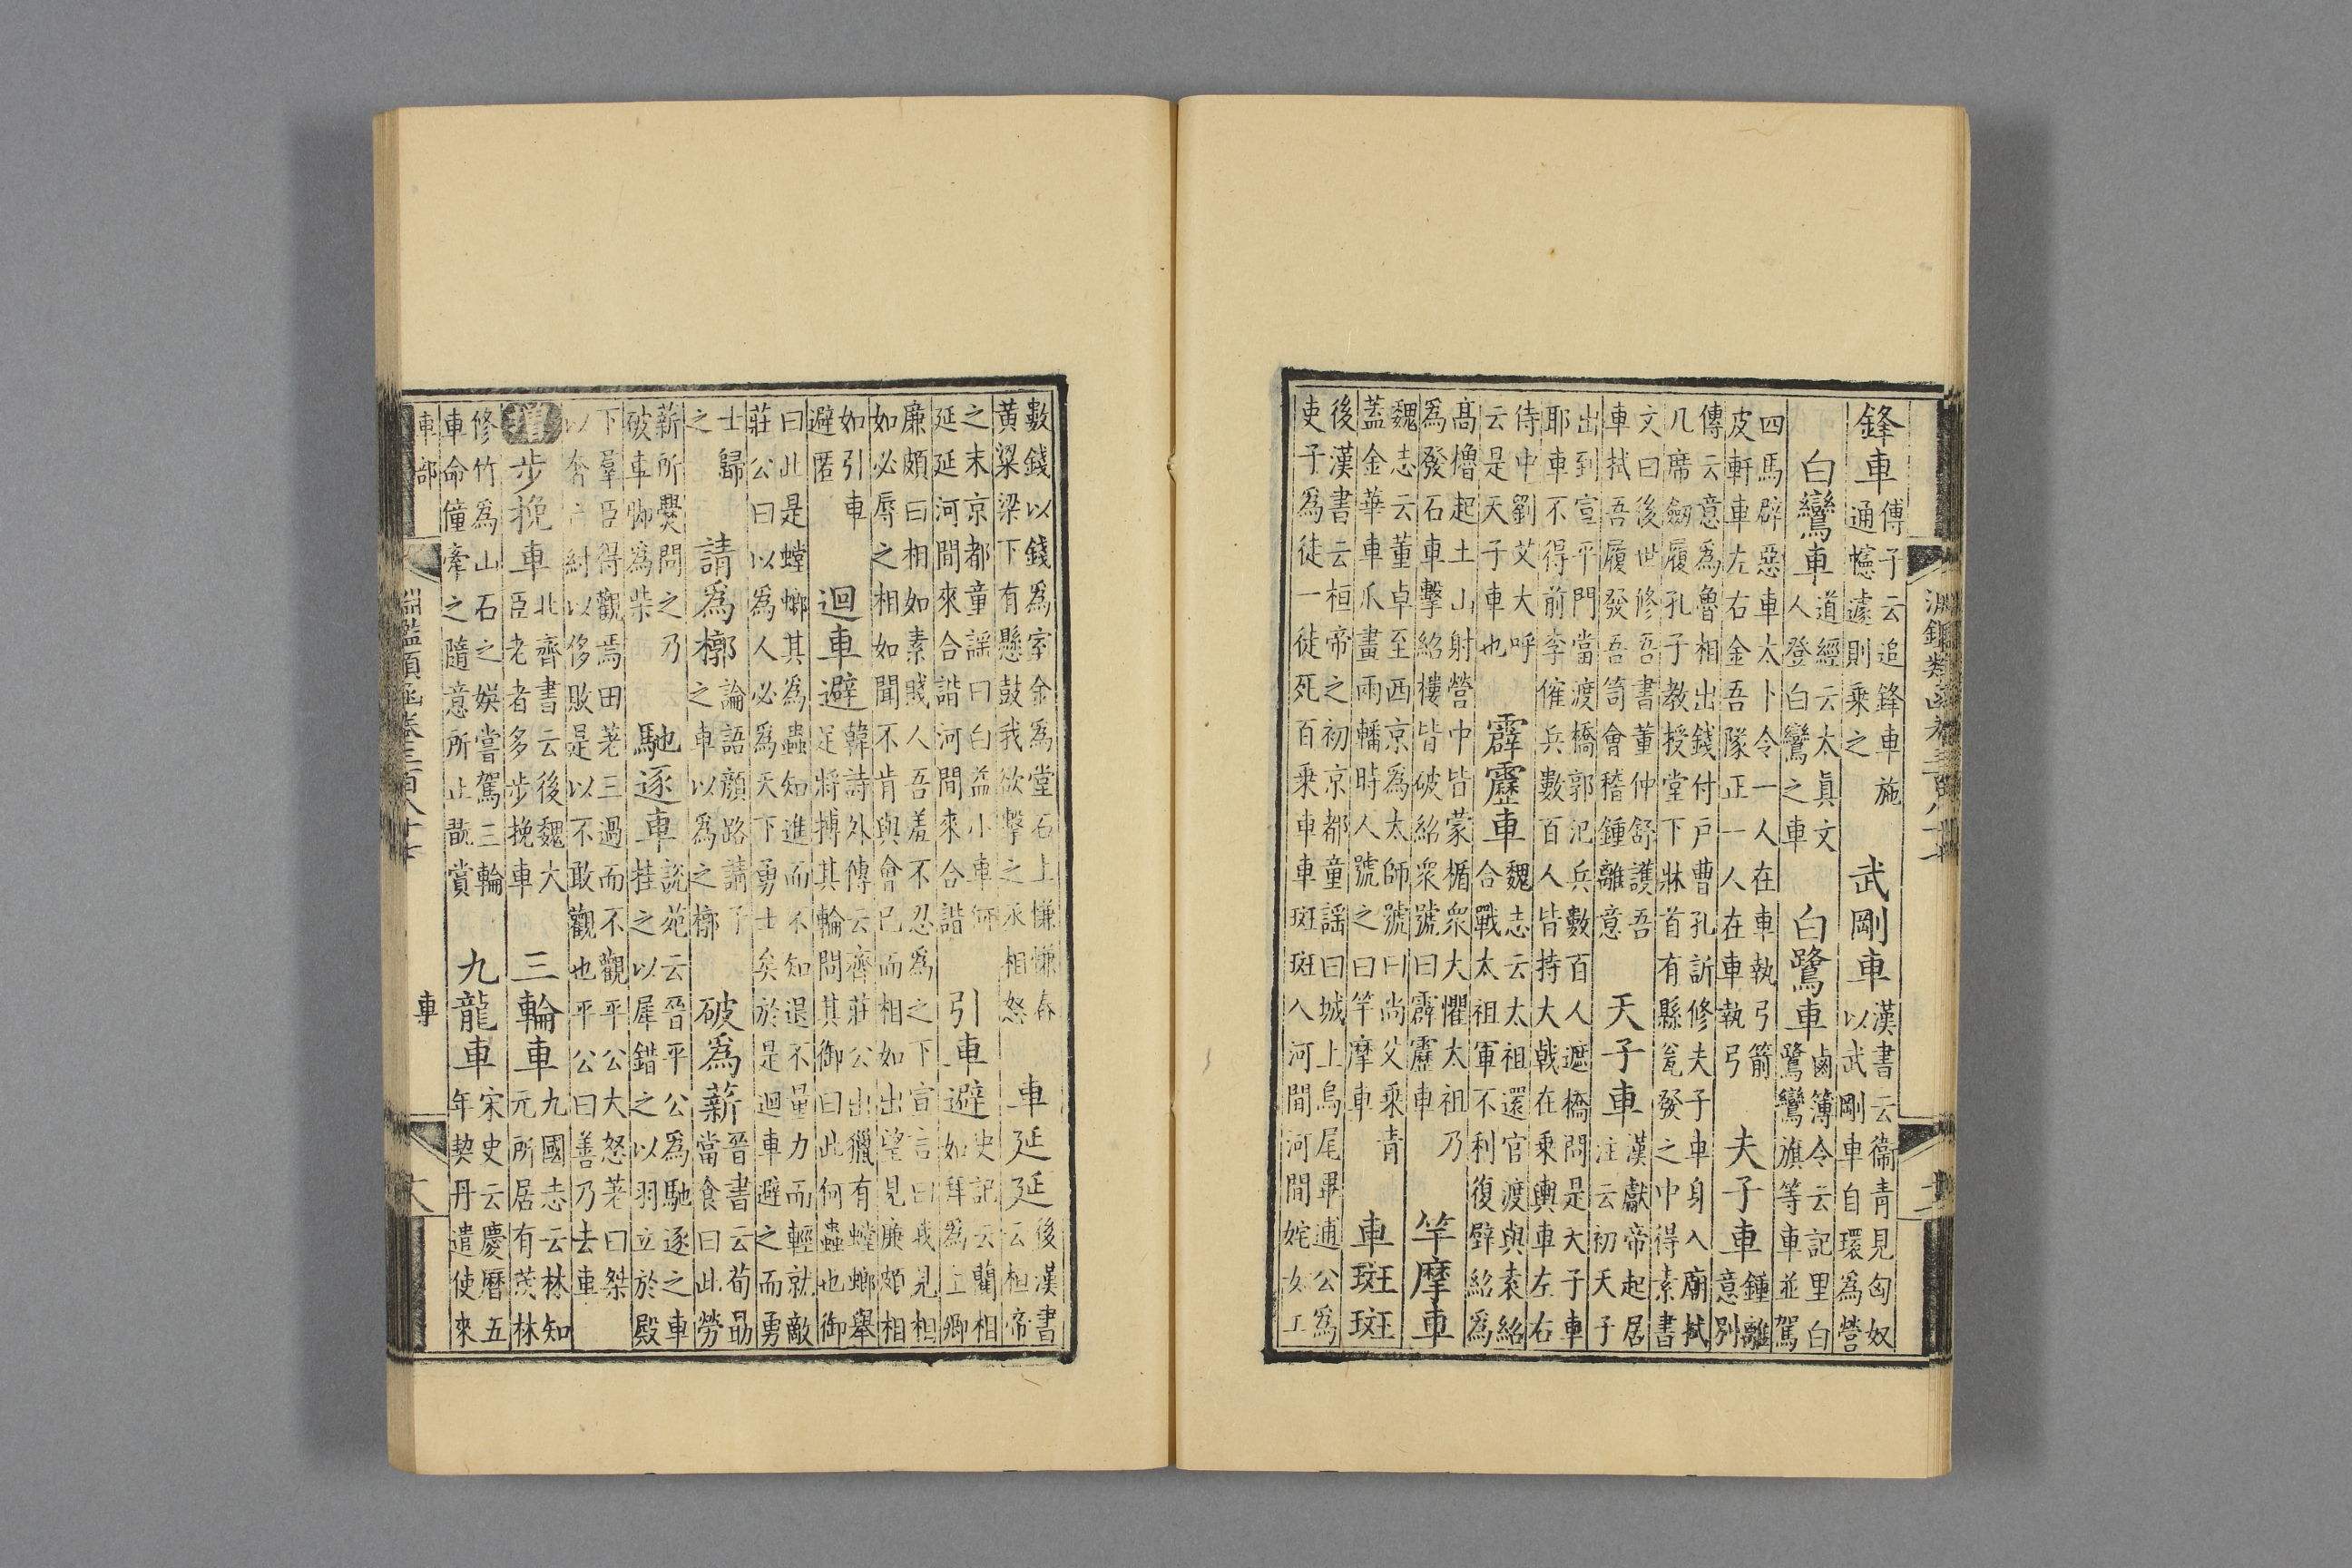 淵鑑類函卷三百八十七
鋒車傅子云追鋒車施通幰遽則乘之　武剛車漢書云衞青見匈奴以武剛車自環爲營
白鸞車道經云太眞文人登白鸞之車　白鷺車鹵簿令云記里白鷺鸞旗等車並駕
四馬辟惡車太卜令一人在車執弓箭皮軒車左右金吾隊正一人在車執弓　夫子車鍾離意別
傳云意爲魯相出錢付戸曹孔訢修夫子車身入廟拭几席劒履孔子教授堂下牀首有縣瓮發之中得素書
文曰後世修吾書董仲舒護吾車拭吾履發吾笥會稽鍾離意　天子車漢獻帝起居注云初天子
出到宣平門當渡橋郭汜兵數百人遮橋問是天子車耶車不得前李傕兵數百人皆持大戟在乘輿車左右
侍中劉艾大呼云是天子車也　霹靂車魏志云太祖還官渡與袁紹合戰太祖軍不利復壁紹爲
髙櫓起土山射營中皆蒙楯衆大懼太祖乃爲發石車擊紹樓皆破紹衆號曰霹靂車　竿摩車
魏志云董卓至西京爲太師號曰尚父乘青蓋金華車爪畫兩轓時人號之曰竿摩車　車斑斑
後漢書云桓帝之初京都童謡曰城上烏尾畢逋公爲吏子爲徒一徒死百乘車車斑斑入河間河間姹女工
數錢以錢爲室金爲堂石上慊慊舂黄粱梁下有懸鼓我欲擊之丞相怒　車延延後漢書云桓帝
之末京都童謡曰白葢小車何延延河間來合諧河間來合諧　引車避史記云藺相如拜爲上卿
廉頗曰相如素賤人吾羞不忍爲之下宣言曰我見相如必辱之相如聞不肯與會已而相如出望見廉頗相
如引車避匿　迴車避韓詩外傳云齊莊公出獵有螳螂舉足將搏其輪問其御曰此何蟲也御
曰此是螳螂其爲蟲知進而不知退不量力而輕就敵莊公曰以爲人必爲天下勇士矣於是迴車避之而勇
士歸之　請爲槨論語顔路請子之車以爲之槨　破爲薪晉書云荀勗當食曰此勞
薪所爨問之乃破車脚爲柴　馳逐車說苑云晉平公爲馳逐之車挂之以犀錯之以羽立於殿
下羣臣得觀焉田茖三過而不觀平公大怒茖曰桀以奢亡紂以侈敗是以不敢觀也平公曰善乃去車
增步挽車北齊書云後魏大臣老者多步挽車　三輪車九國志云林知元所居有茂林
修竹爲山石之娛嘗駕三輪車命僮牽之隨意所止酣賞　九龍車宋史云慶曆五年契丹遣使來
車部　淵鑑類函卷三百八十七　車　六